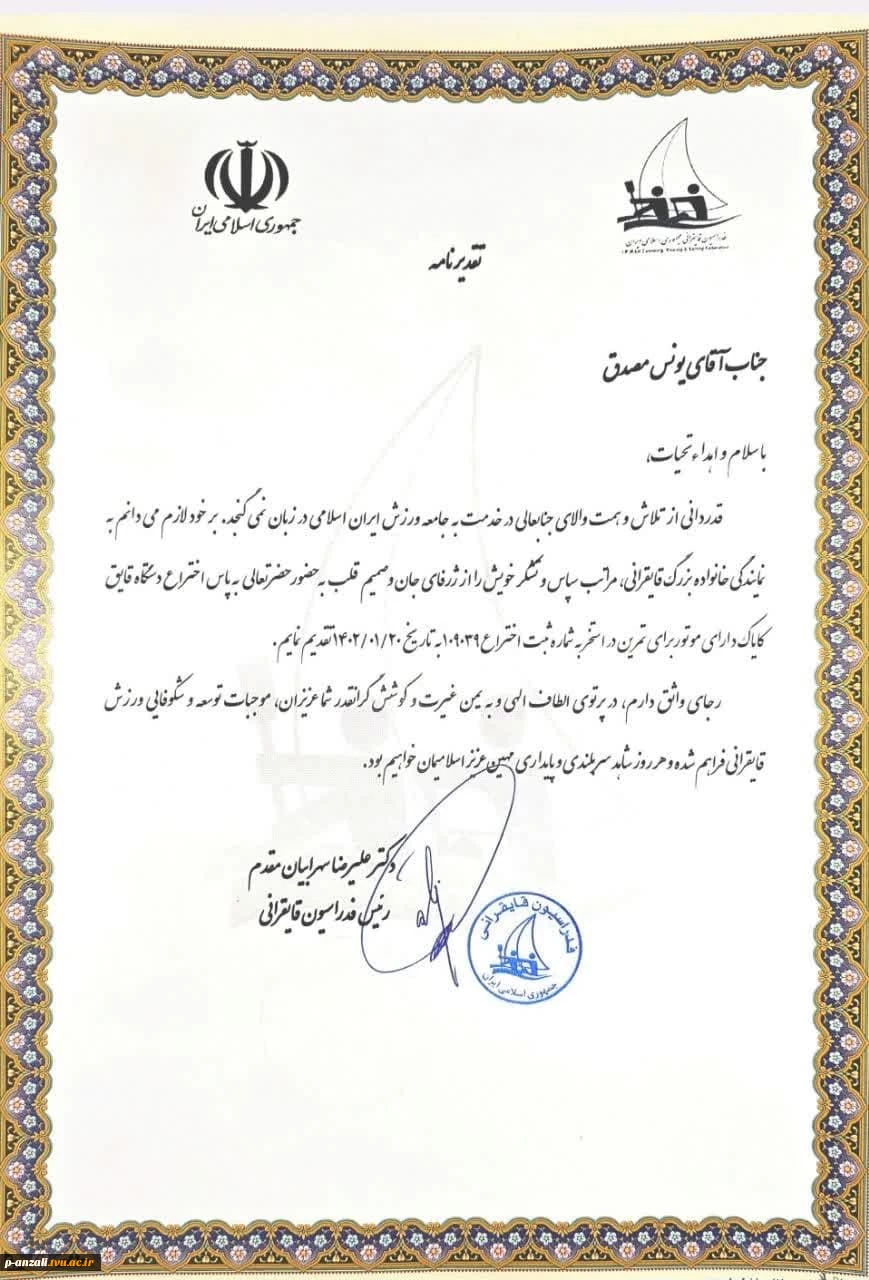 جمهوری اسلامی ایران
فدراسیون قایقرانی جمهوری اسلامی ایران
تقدیرنامه
جناب آقای یونس مصدق
با سلام و اهداء تحیات،
قدردانی از تلاش و همت والای جنابعالی در خدمت به جامعه ورزش ایران اسلامی در زبان نمی گنجد. بر خود لازم می دانم به
نمایندگی خانواده بزرگ قایقرانی، مراتب سپاس و تشکر خویش را از ژرفای جان و صمیم قلب به حضور حضرتعالی به پاس اختراع دستگاه قایق
کایاک دارای موتور برای تمرین در استخر به شماره ثبت اختراع ۱۰۹۰۳۹ به تاریخ ۱۴۰۲/۰۱/۲۰ تقدیم نمایم.
رجای واثق دارم، در پرتوی الطاف الهی و به یمن غیرت و کوشش گرانقدر شما عزیزان، موجبات توسعه و شکوفایی ورزش
قایقرانی فراهم شده و هر روز شاهد سربلندی و پایداری میهن عزیز اسلامیمان خواهیم بود.
دکتر علیرضا سهرابیان مقدم
رئیس فدراسیون قایقرانی
فدراسیون قایقرانی
جمهوری اسلامی ایران
p-anzali.tvu.ac.ir